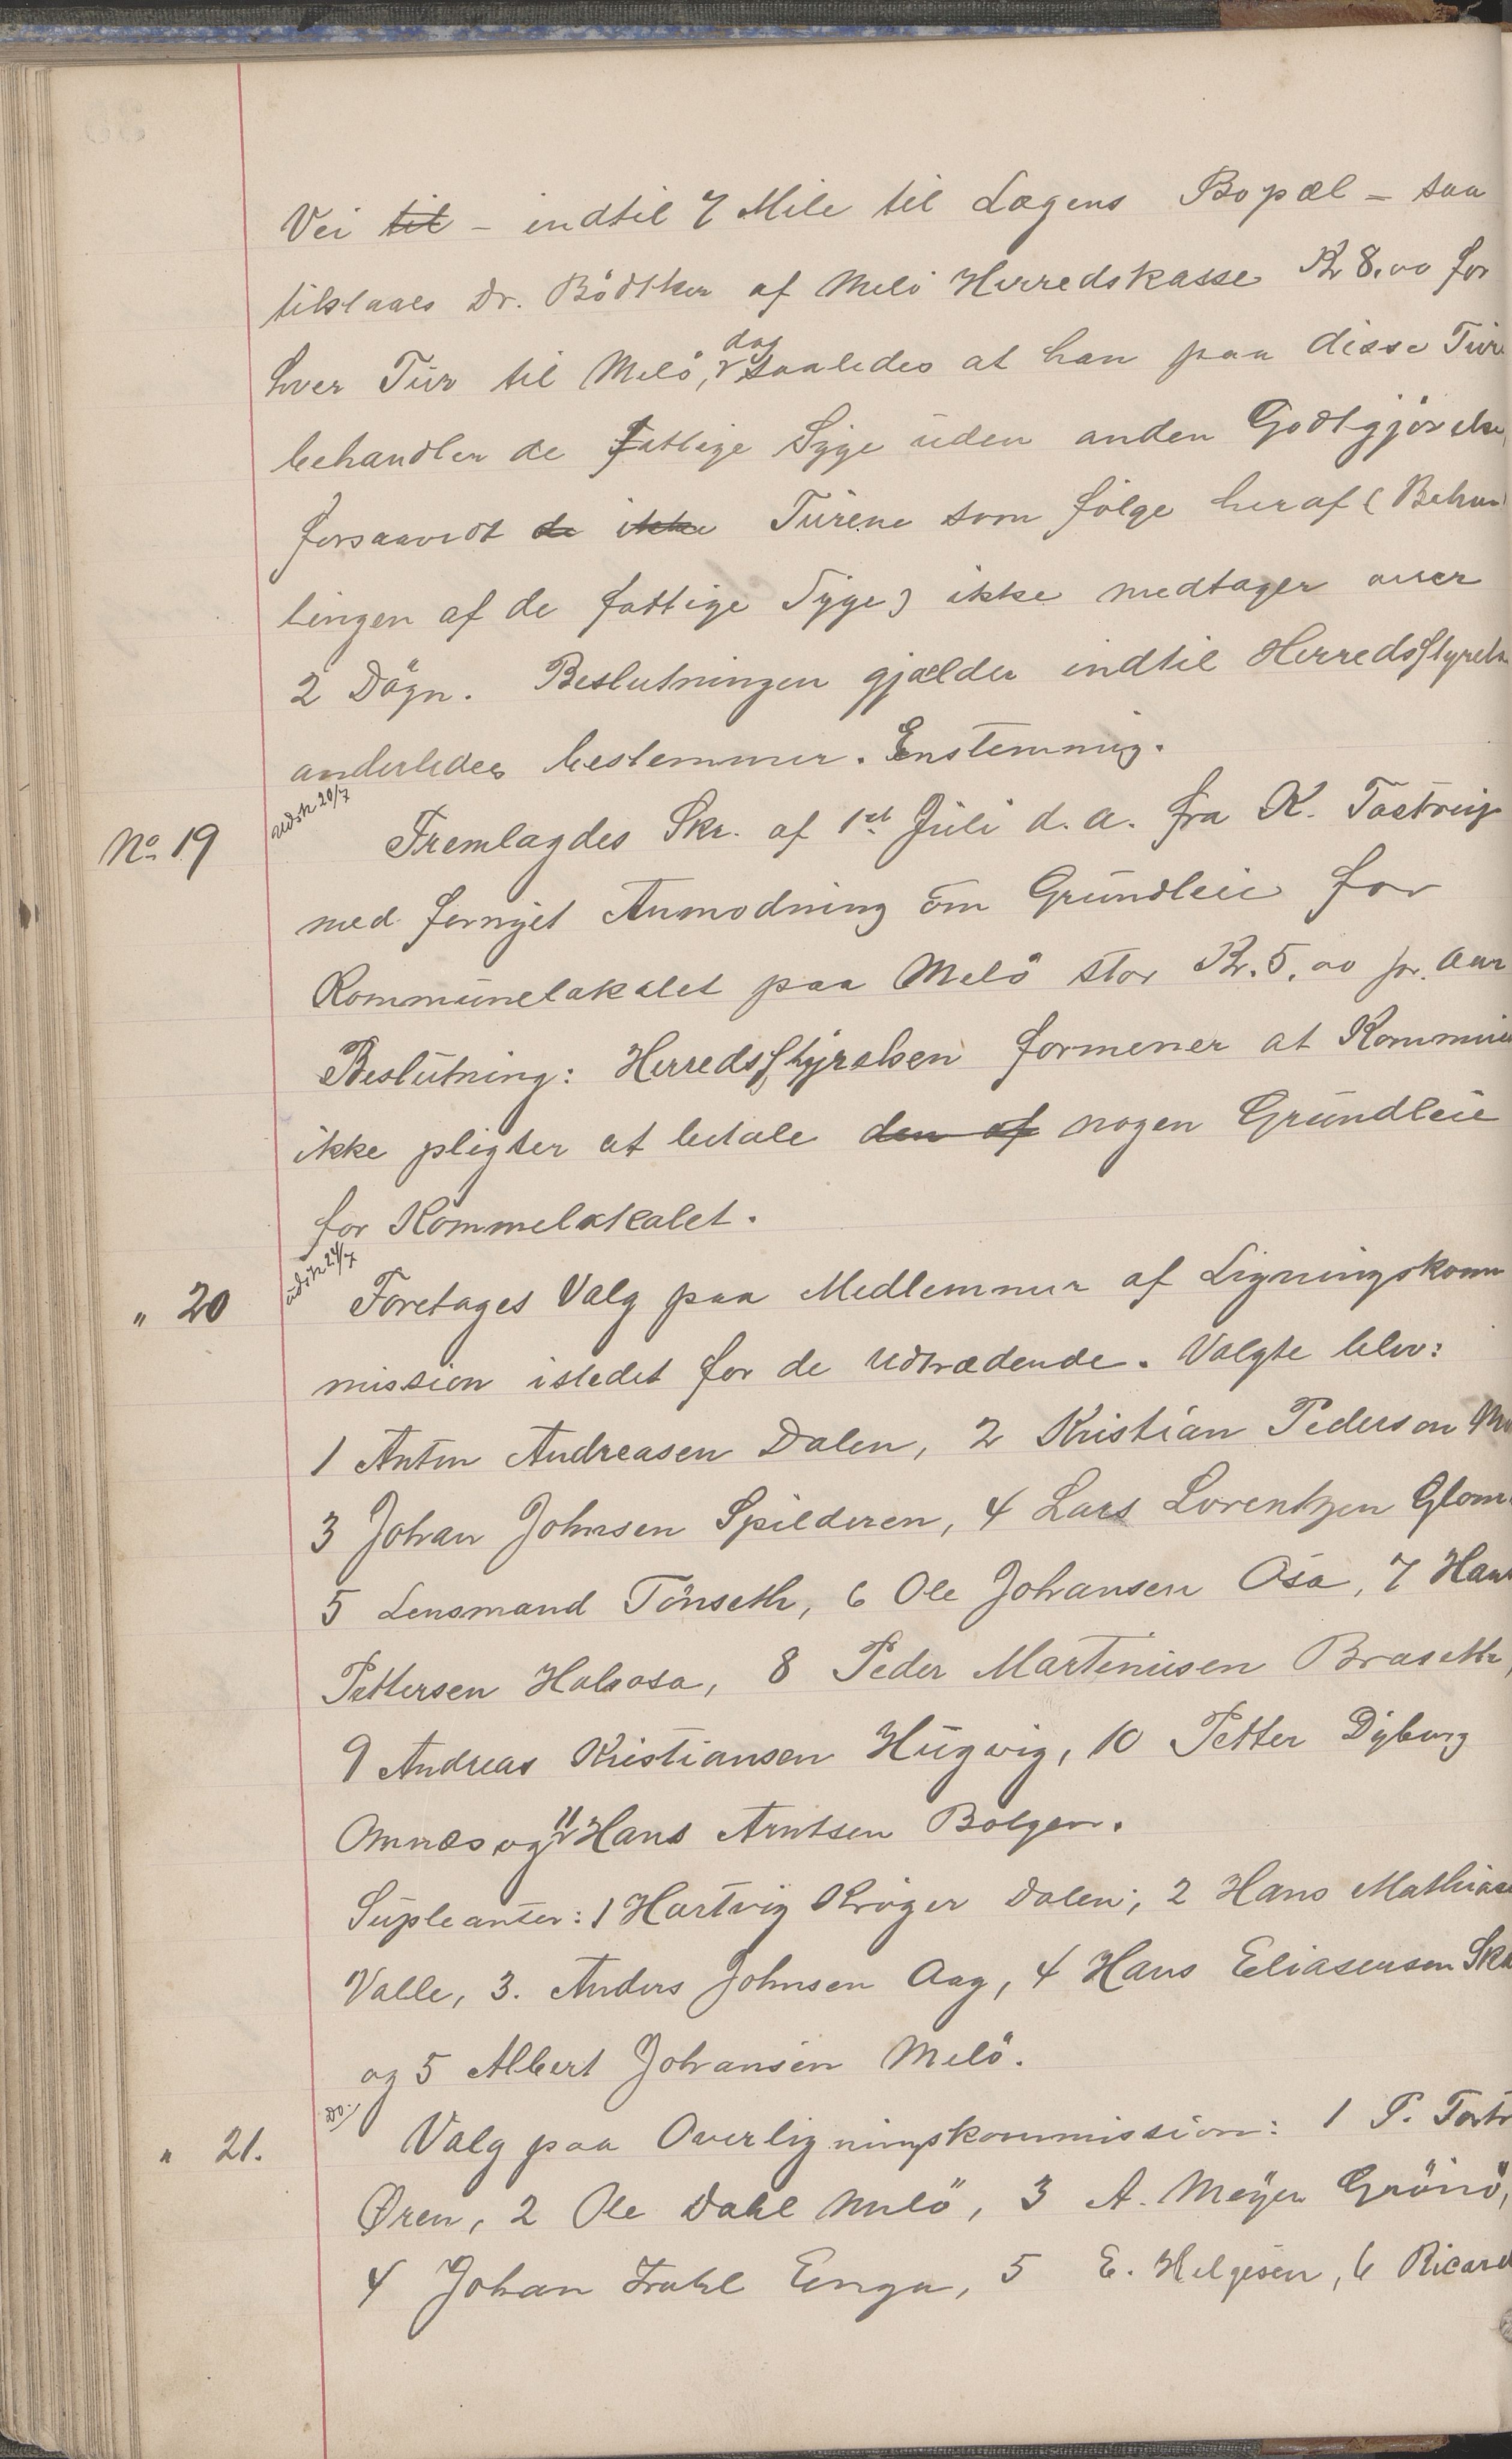 Vei til - indtil 7 Mile til Lægens Bopæl - saa
tilstaaes Dr. Bödtker af Melö Herredskasse Kr 8.00 for
hver Tur til Melö, dog saaledes at han paa disse Ture
behandler de fattige Syge uden anden Godtgjörelse,
forsaavidt de ikke Turene som fölge heraf (Behand
lingen af de fattige Syge) ikke medtager over
2 Dögn. Beslutningen gjælder indtil Herredsstyrelsen
anderledes bestemmer. Enstemmig.
Udsk 20/7
No 19 Fremlagdes Skr. af 1ste Juli d. a. fra K. Tostrup
med fornyet Anmodning om Grundleie for
Kommunelokalet paa Melö stor Kr. 5.00 pr. Aar
Beslutning: Herredsstyrelsen formener at Kommun
ikke pligter at betale den af nogen Grundleie
for Kommelokalet.
udsk 24/7
" 20 Foretages Valg paa Medlemmer af Ligningskom
mission istedet for de Udtrædende. Valgte blev:
1 Anton Andreasen Dalen, 2 Kristian Pederson
3 Johan Johnsen Spilderen, 4 Lars Lorentzen Glom
5 Lensmand Tönseth, 6 Ole Johansen Osa, 7 Hans
Pettersen Halsosa, 8 Peder Martinusen Braseth,
9 Andreas Kristiansen Hugvig, 10 Petter Dyborg
Omnes og 11 Hans Arntsen Bolgen.
Supleanter: 1 Hartvig Kröger Dalen; 2 Hans Mathias
Valle, 3. Anders Johnsen Aag, 4 Hans Eliasensen
og 5 Albert Johansen Melö.
Do.
" 21. Valg paa Overligningskommission: 1 P. Tostr
Øren, 2 Ole Dahl Melö, 3 A. Meyer Grönö,
4 Johan Dahl Enga, 5 E. Helgesen, 6 Ricard